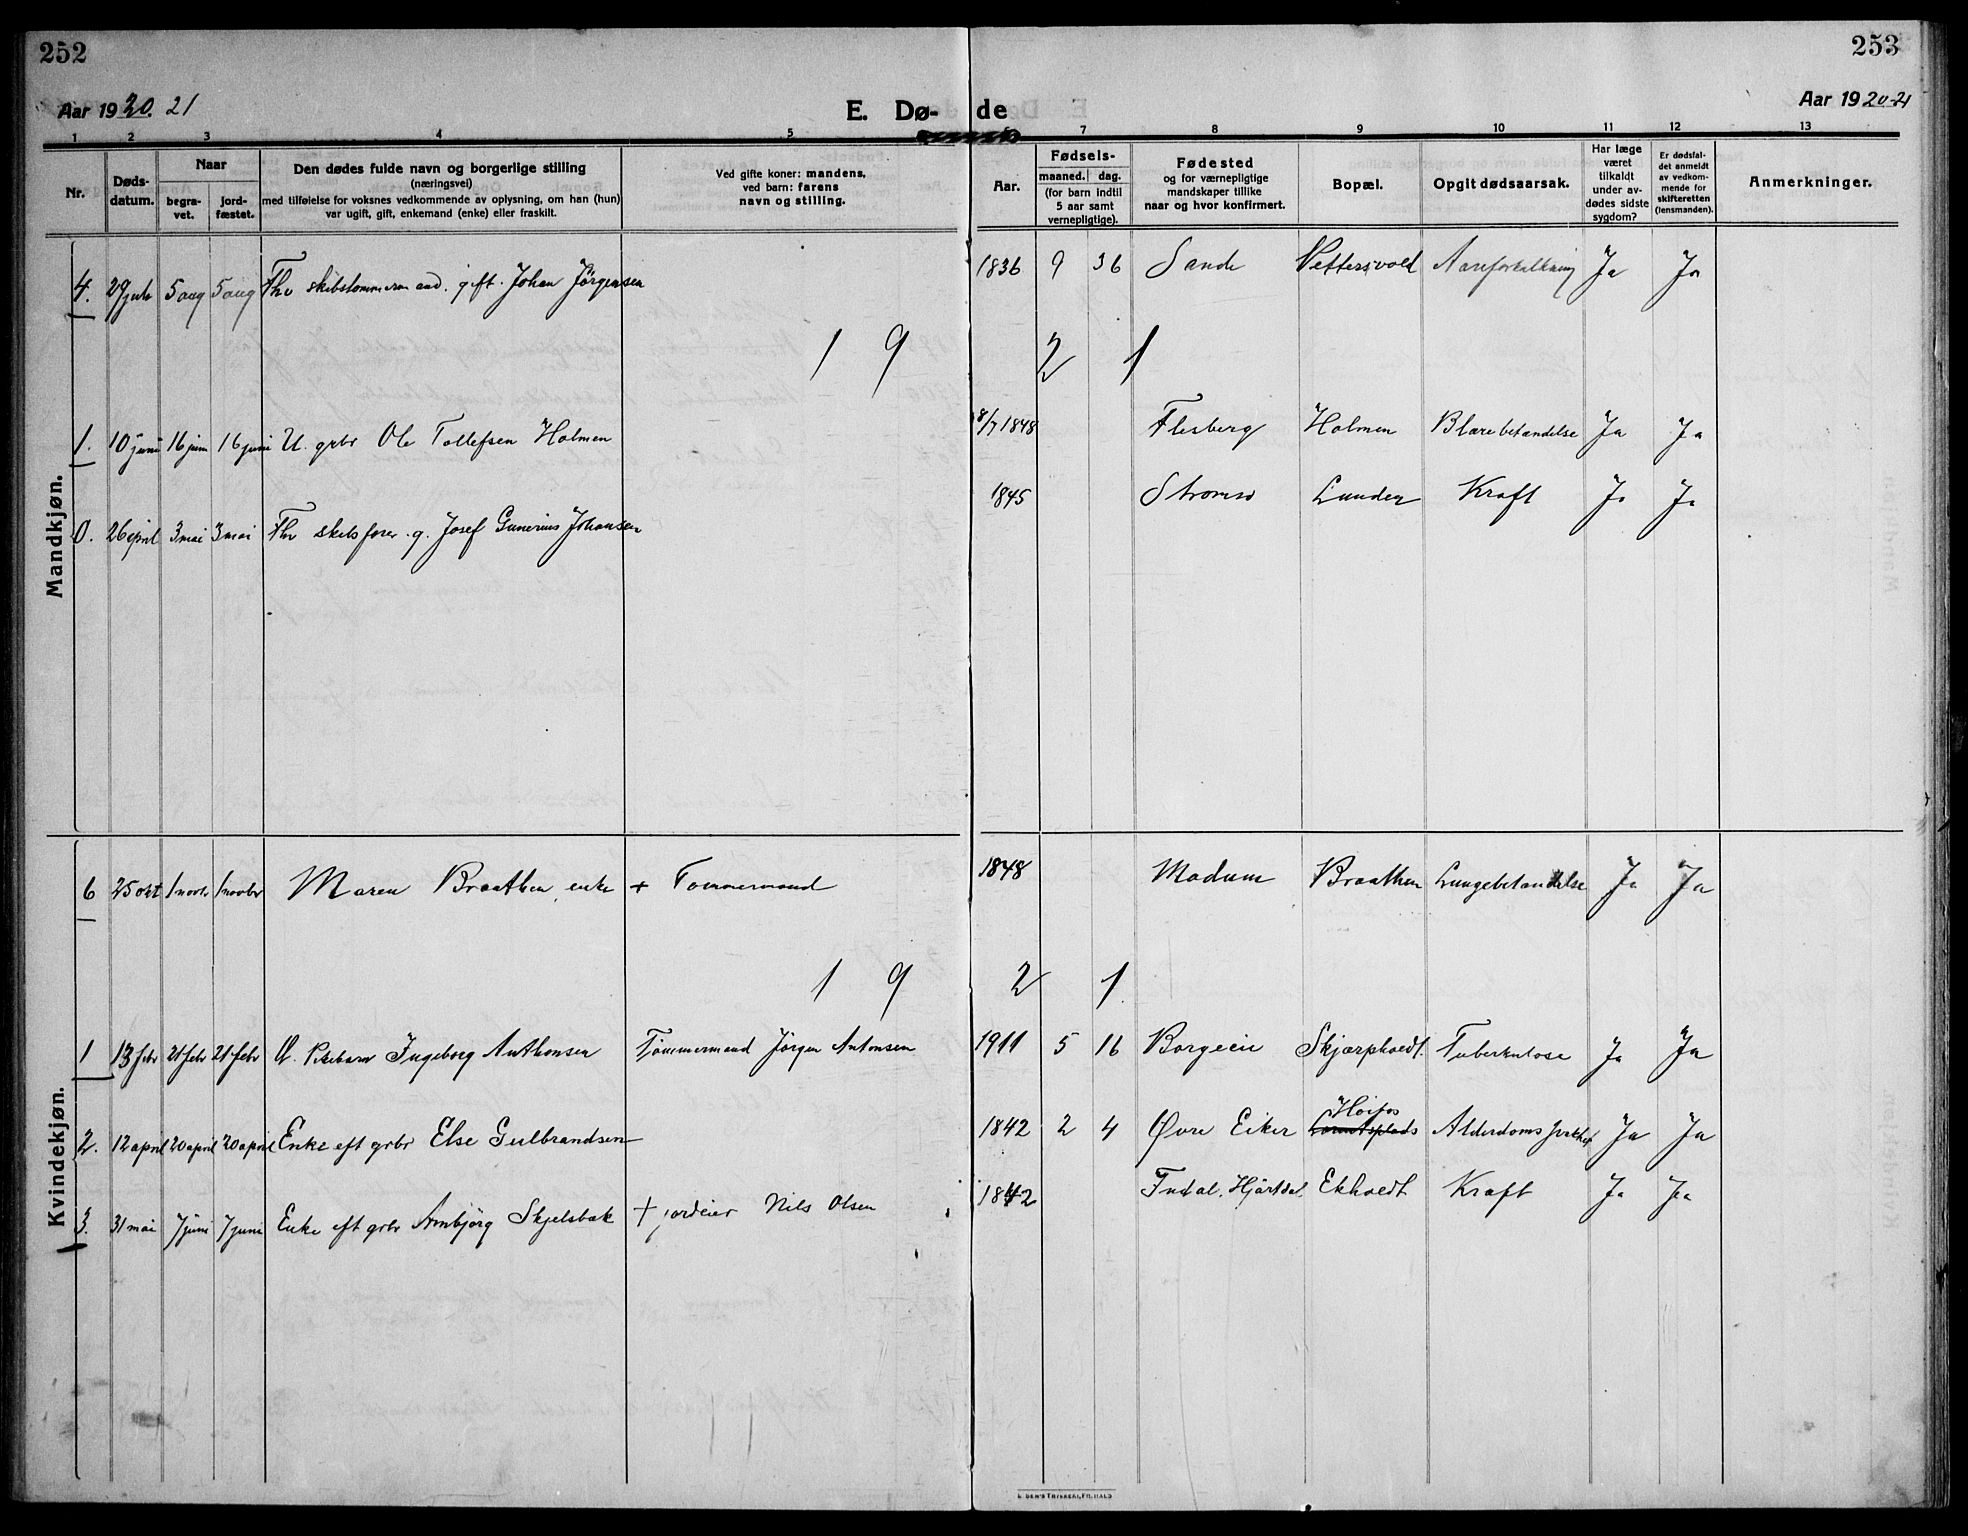 252
253
Aar 1920. 21
E. Dø-
de
Aar 1920-21
1 2 3 4 5 7 8 9 10 11 12 13
Nr.
Døds-
datum.
Naar
begra-
vet.
jord-
fæstet.
Den dødes fulde navn og borgerlige stilling
(næringsvei)
med tilføielse for voksnes vedkommende av oplysning, om han (hun)
var ugift, gift, enkemand (enke) eller fraskilt.
Ved gifte koner: mandens,
ved barn: farens
navn og stilling.
Aar.
Fødsels-
maaned. dag.
(for barn indtil
5 aar samt
vernepligtige).
Fødested
og for værnepligtige
mandskaper tillike
naar og hvor konfirmert.
Bopæl.
Opgit dødsaarsak.
Har læge
været
tilkaldt
under av-
dødes sidste
sygdom?
Er dødsfal-
det anmeldt
av vedkom-
mende for
skifteretten
(lensmanden).
Anmerkninger.
Mandkjøn.
4. 29 juli 5 aug 5 aug Fhv skibstømmermand. gift. Johan Jörgensen 1836 9 36 Sande Vettersvold Aareforkalkning Ja Ja
1 9 2 1
1. 10 juni 16 juni 16 juni U. grbr Ole Tollefsen Holmen 8/7 1848 Flesberg Holmen Blærebetændelse Ja Ja
0. 26 april 3 mai 3 mai Fhv skibsfører. g. Josef Gunerius Johansen 1845 Strømsø Lunden Kræft Ja Ja
Kvindekjøn.
6 25 okt 1 novbr 1 novbr Maren Braathen, enke + Tømmermand 1848 Modum Braathen Lungebetændelse Ja Ja
1 9 2 1.
1 13 febr 21 febr 21 febr Pikebarn Ingeborg Anthonsen Tömmermand Jörgen Antonsen 1911 5 16 Borgeeie Skjærphoedt. Tuberkulose Ja Ja
2. 12 april 20 april 20 april Enke eft grbr Else Gulbrandsen 1842 2 4 Øvre Eiker Høifos Alderdoms Ja Ja
3. 31 mai 7 juni 7 juni Enke eft grbr Ambjörg Skjelsbæk + jordeier Nils Olsen 1842 Tudal, Hjartdal. Ekhoedt Kræft Ja Ja